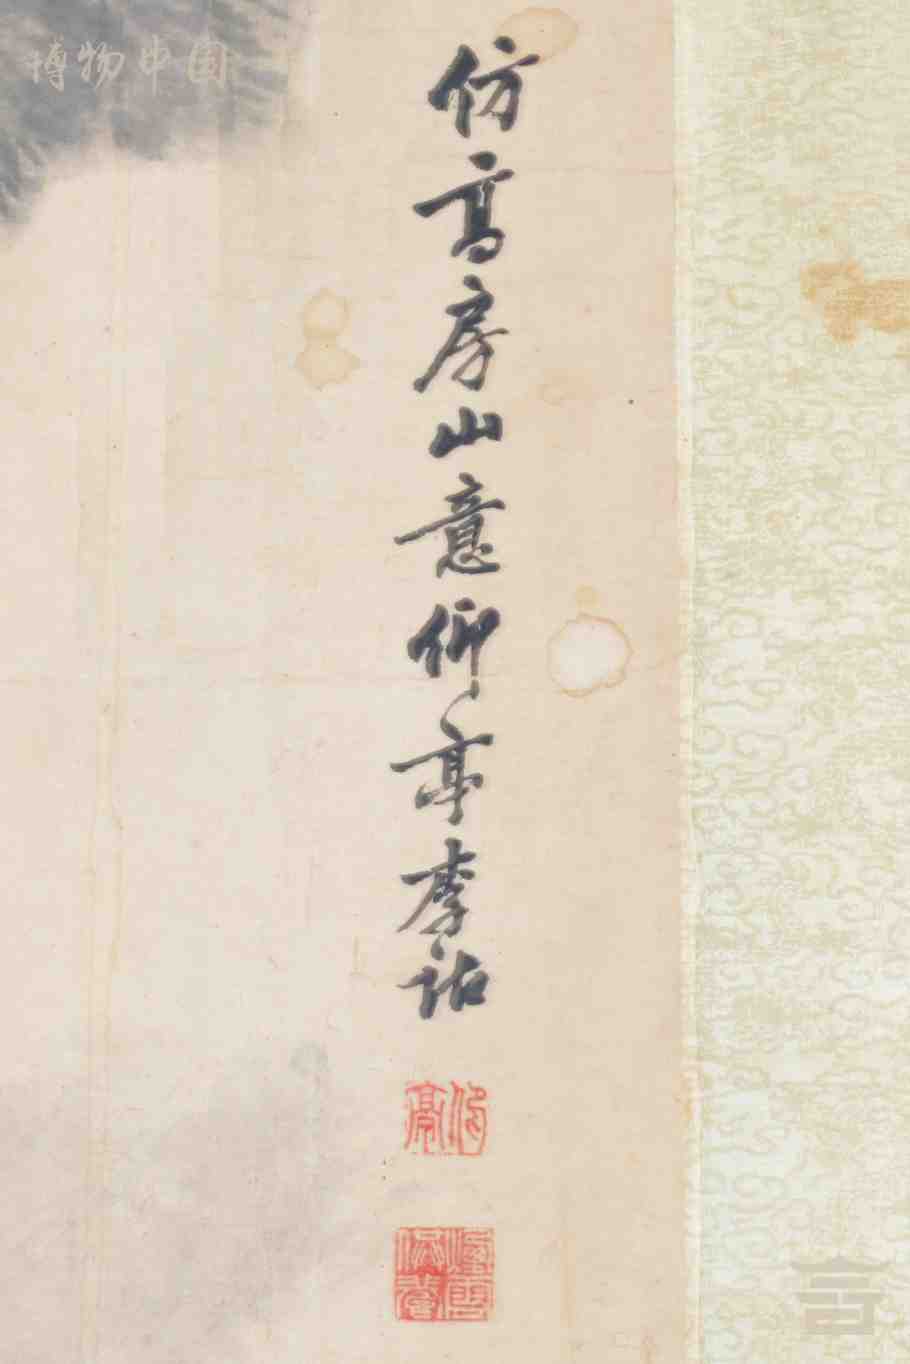 博物中国
仿高房山意仰亭李祐
仰亭